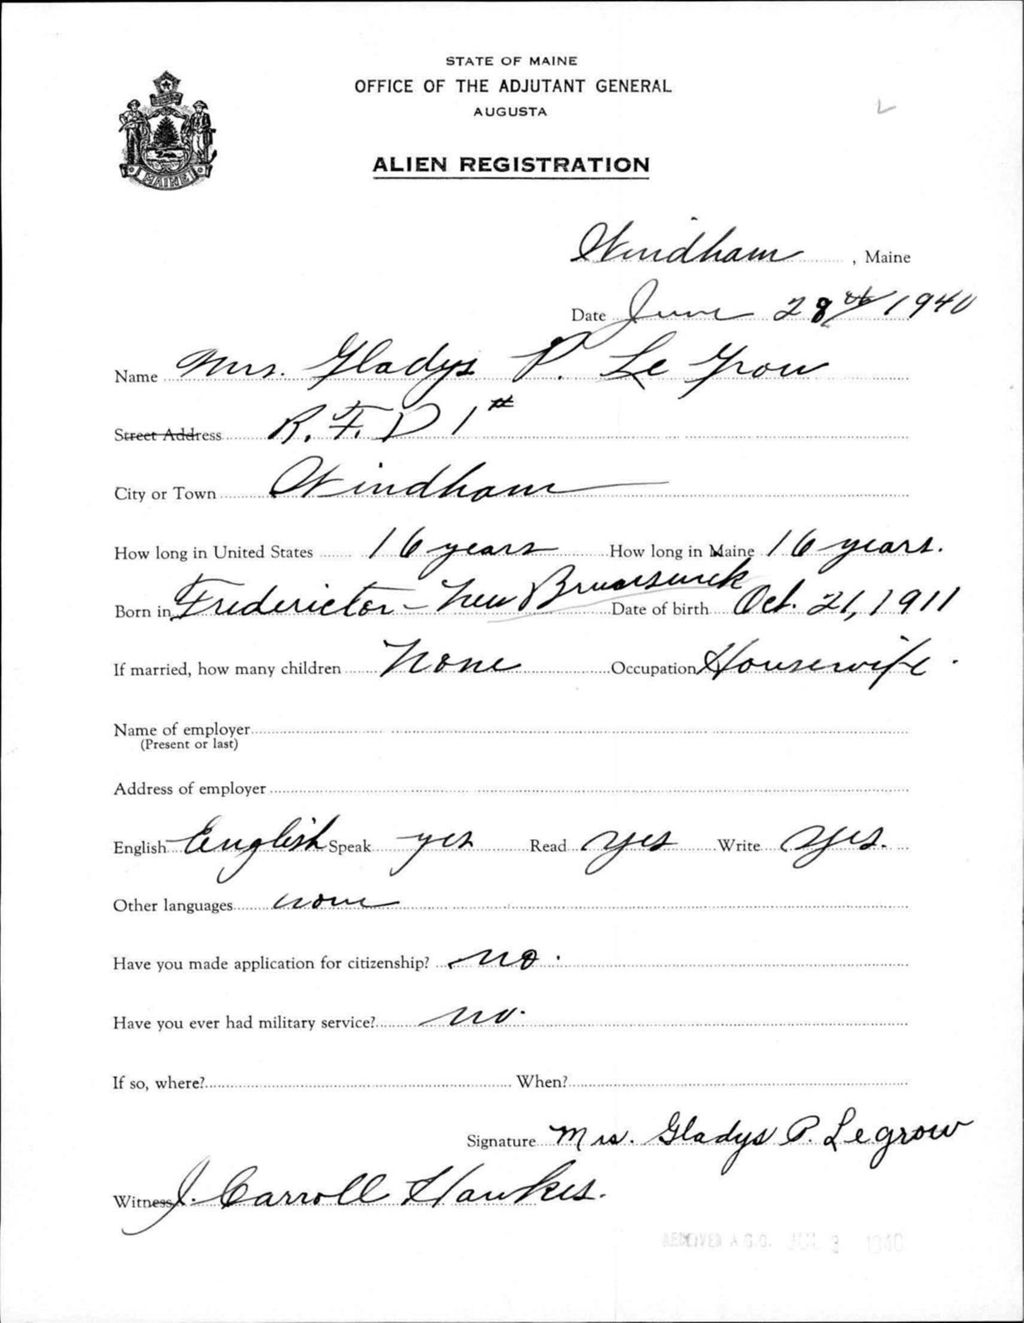 STATE OF MAINE
OFFICE OF THE ADJUTANT GENERAL
AUGUSTA
MAINE
ALIEN REGISTRATION
Windham, Maine
Date June 28th 1940
Name Mrs. Gladys P. Le Grow
Street Address R. F. D 1#
City or Town Windham
How long in United States 16 years How long in Maine 16 years.
Born in Fredericton - New Brunswick Date of birth Oct. 21, 1911
If married, how many children None Occupation Housewife.
Name of employer
(Present or last)
Address of employer
English English Speak yes Read yes Write yes.
Other languages none
Have you made application for citizenship? no.
Have you ever had military service? no.
If so, where? When?
Signature Mrs. Gladys P. Legrow
Witness J. Carroll Hawkes.
RECEIVED A.G.O. JUL 2 1940